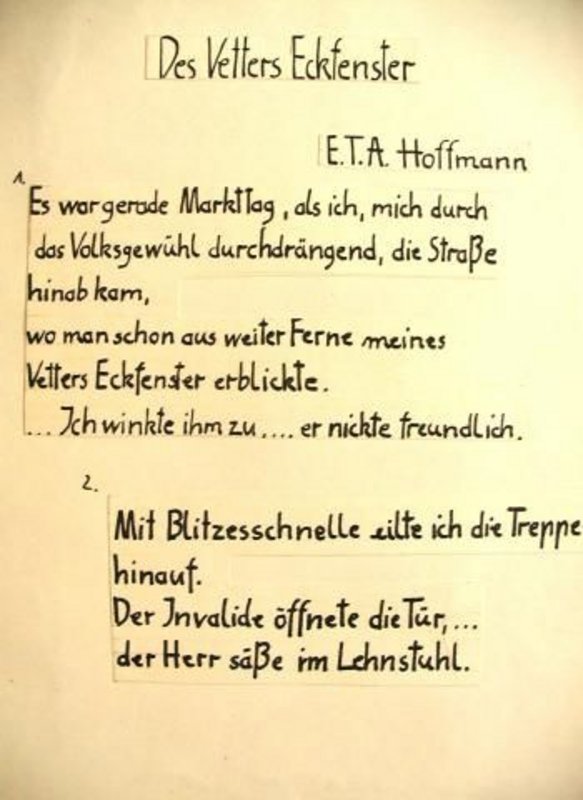 Des Vetters Eckfenster
E.T.A. Hoffmann
1.
Es war gerade Markttag, als ich, mich durch
das Volksgewühl durchdrängend, die Straße
hinab kam,
wo man schon aus weiter Ferne meines
Vetters Eckfenster erblickte.
... Ich winkte ihm zu .... er nickte freundlich.
2.
Mit Blitzesschnelle eilte ich die Treppe
hinauf.
Der Invalide öffnete die Tür, ...
der Herr säße im Lehnstuhl.